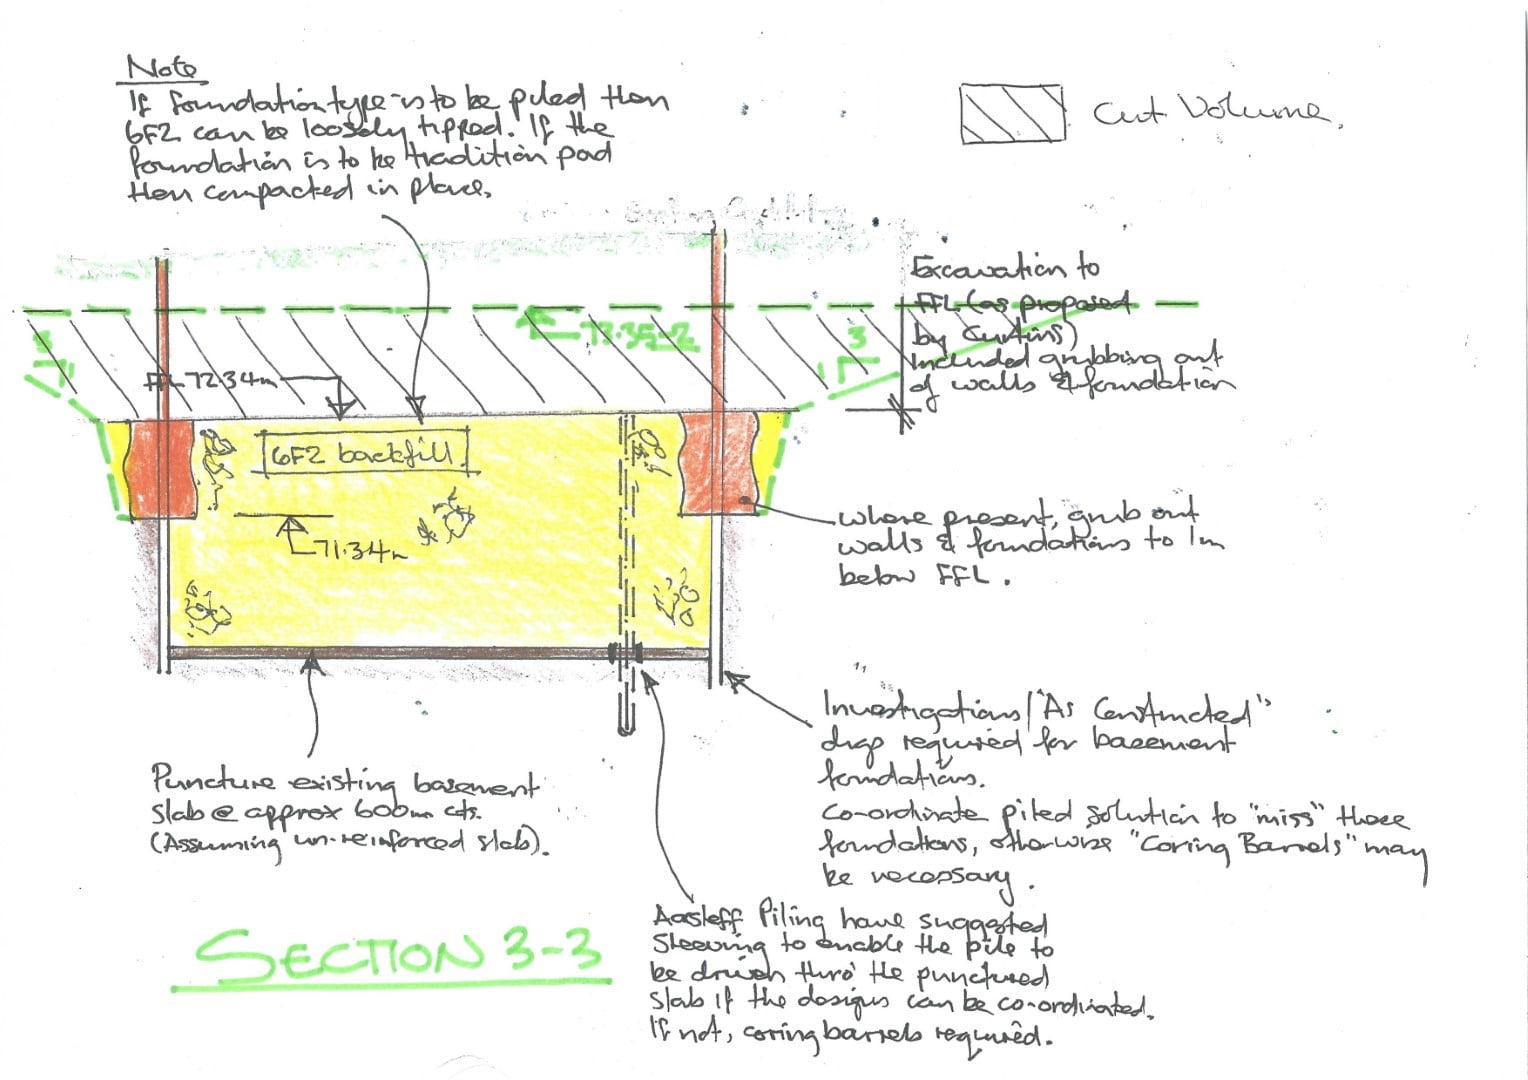 Note
If foundation type is to be piled then
6F2 can be loosely tipped. If the
foundation is to be tradition pad
then compacted in place.
Cut Volume.
Excavation to
FFL (as proposed
by Curtins)
Included grubbing out
of walls & foundation
3
1
FFL 72.34m
3
1
6F2 backfill
71.34m
where present, grub out
walls & foundations to 1m
below FFL.
Investigations/"As Constructed"
drgs required for basement
foundations.
Co-ordinate piled solution to "miss" these
foundations, otherwise "Coring Barrels" may
be necessary.
Puncture existing basement
slab @ approx 600mm cts.
(Assuming un-reinforced slab).
Aarsleff Piling have suggested
sleeving to enable the pile to
be driven thro' the punctured
slab if the designs can be co-ordinated.
If not, coring barrels required.
SECTION 3-3